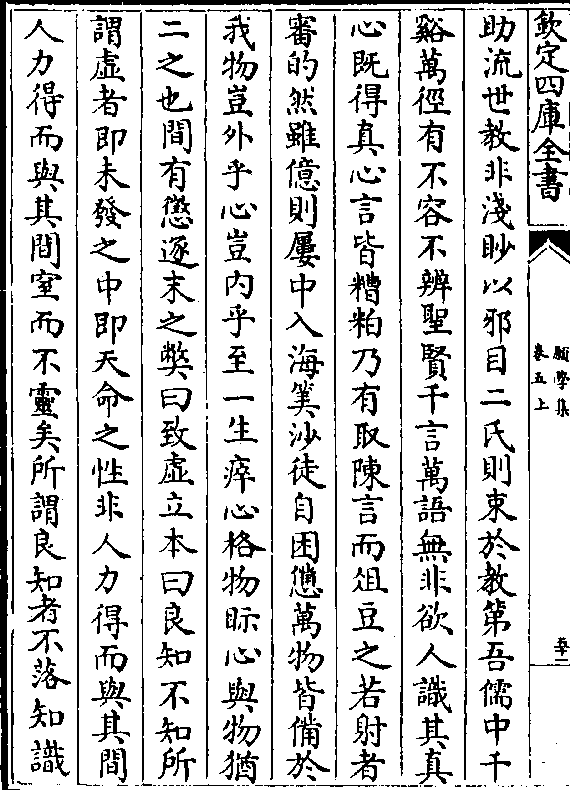 欽定四庫全書
願學集
卷五上
助流世教非淺眇以邪目二氏則束於教第吾儒中千
谿萬徑有不容不辨聖賢千言萬語無非欲人識其真
心既得真心言皆糟粕乃有取陳言而俎豆之若射者
審的然雖億則屢中入海筭沙徒自困憊萬物皆備於
我物豈外乎心豈内乎至一生瘁心格物眎心與物猶
二之也間有懲逐末之獘曰致虛立本曰良知不知所
謂虛者即未發之中即天命之性非人力得而與其間
人力得而與其間窒而不靈矣所謂良知者不落知識